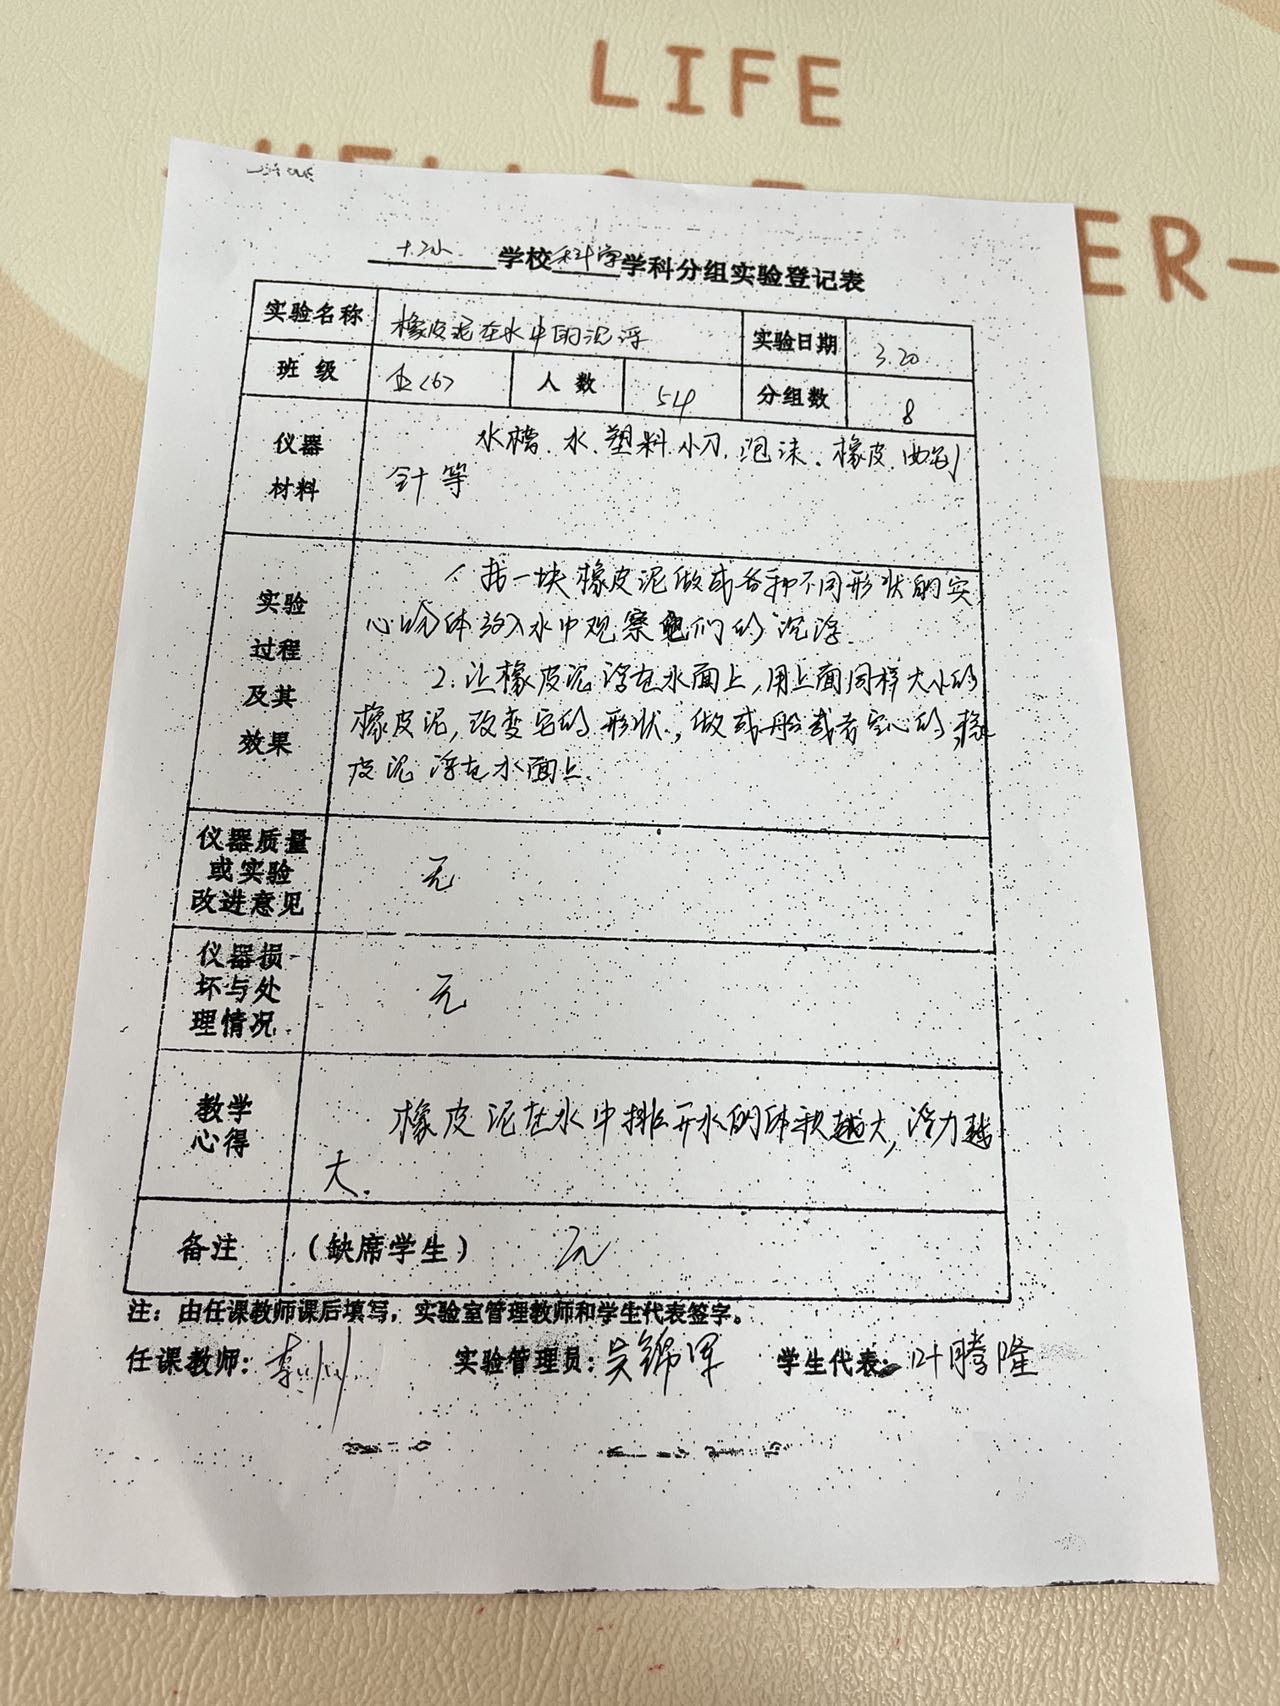 LIFE
ER-
学校科学学科分组实验登记表
实验名称 橡皮泥在水中的沉浮 实验日期 3.20
班级 五<6> 人数 54 分组数 8
仪器
材料
水槽.水.塑料小刀.泡沫.橡皮.
针等
实验
过程
及其
效果
1.把一块橡皮泥做成各种不同形状的实
心物体放入水中观察它们的沉浮.
2.让橡皮泥浮在水面上,用上面同样大小的
橡皮泥,改变它的形状,做成船或者空心的橡
皮泥浮在水面上.
仪器质量
或实验
改进意见
无
仪器损
坏与处
理情况
无
教学
心得
橡皮泥在水中排开水的体积越大,浮力越
大.
备注 (缺席学生) 无
注：由任课教师课后填写，实验室管理教师和学生代表签字。
任课教师： 实验管理员：吴锦军 学生代表：叶腾隆